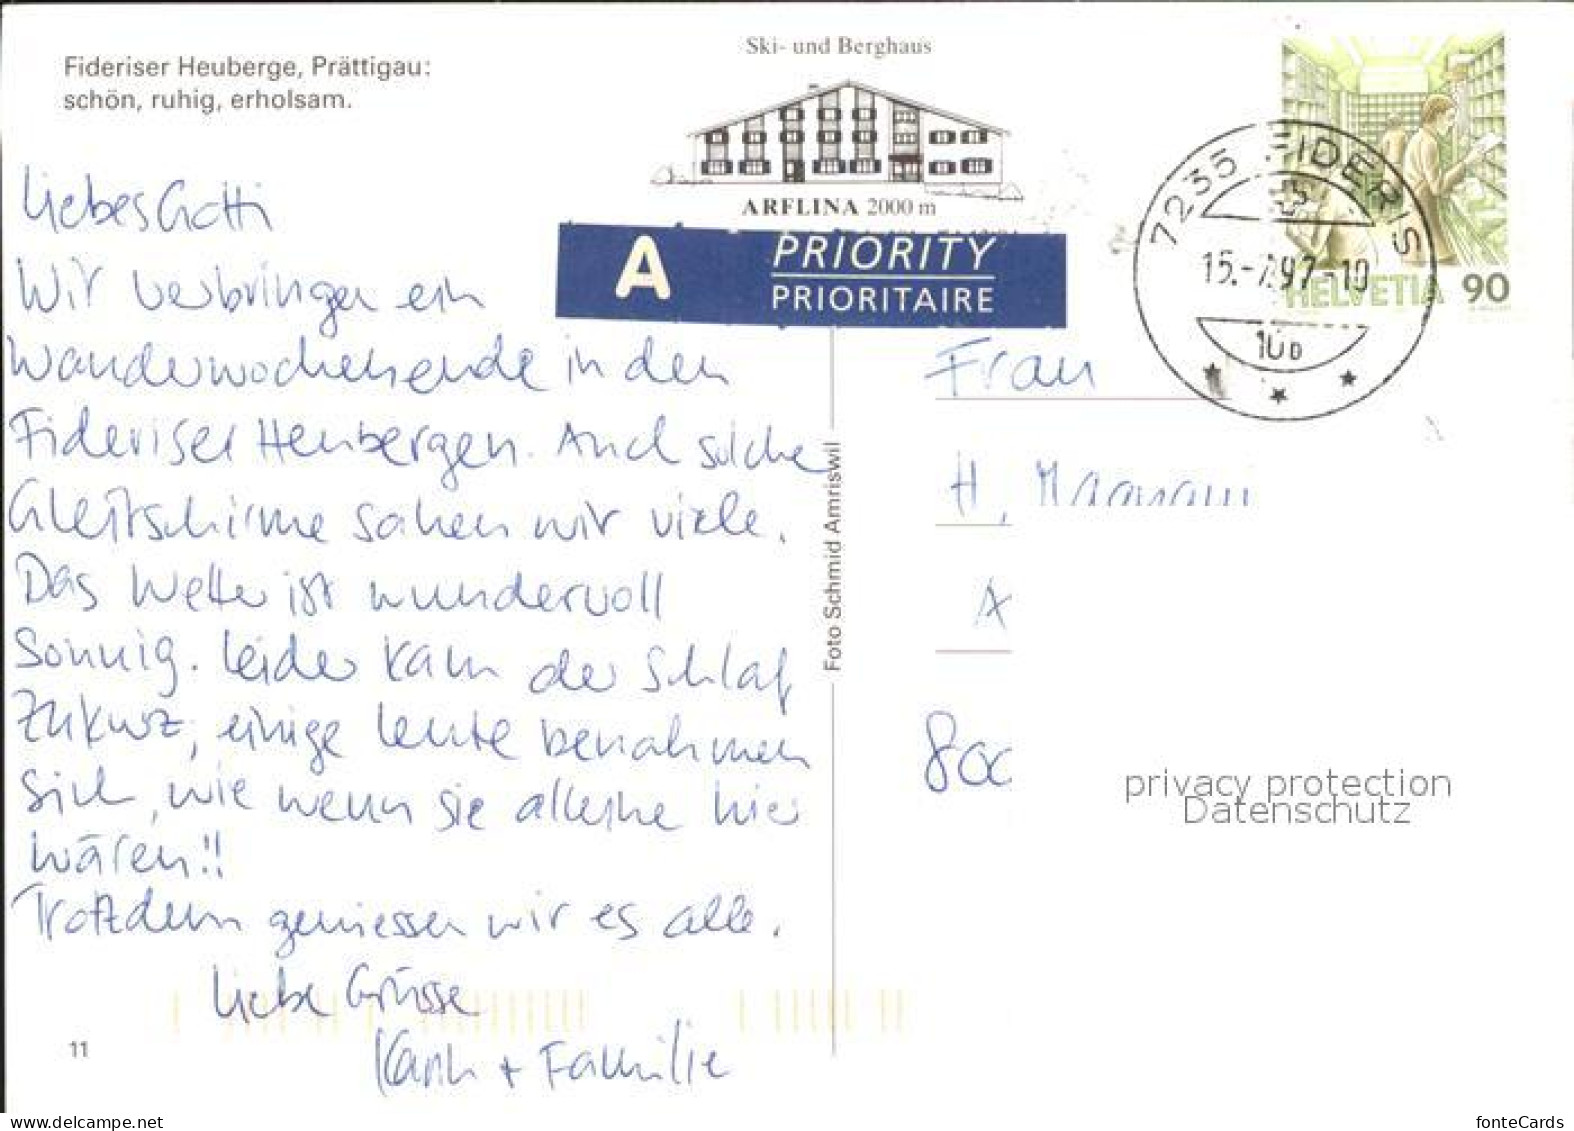 Fideriser Heuberge, Prättigau:
schön, ruhig, erholsam.
Ski- und Berghaus
ARFLINA 2000 m
A PRIORITY
PRIORITAIRE
7235 FIDERIS
15.-7.97-10
HELVETIA 90
Liebes Gotti
Wir verbringen ein
Wanderwochenende in den
Fideriser Heubergen. Auch solche
Gleitschirme sahen wir viele.
Das Wetter ist wundervoll
sonnig. Leider kam der Schlaf
zukurz, einige Leute benahmen
sich, wie wenn sie alleine hier
wären!!
Trotzdem geniessen wir es alle.
Liebe Grüsse
+ Familie
Foto Schmid Amriswil
Frau
H.
A
800
privacy protection
Datenschutz
11
www.delcampe.net
fonteCards